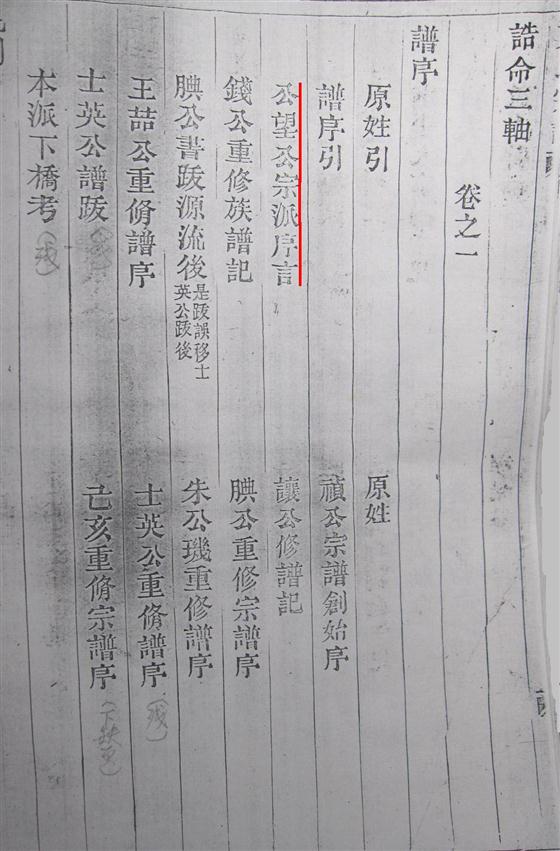 誥命三軸
卷之一
譜序
原姓引
原姓
譜序引
禎公宗譜創始序
公望公宗派序言
讓公修譜記
錢公重修族譜記
腆公重修宗譜序
腆公書跋源流後 是跋誤移士英公跋後
朱公璣重修譜序
王喆公重脩譜序
士英公重脩譜序(殘)
士英公譜跋(殘)
己亥重脩宗譜序(下缺頁)
本派下橋考(殘)